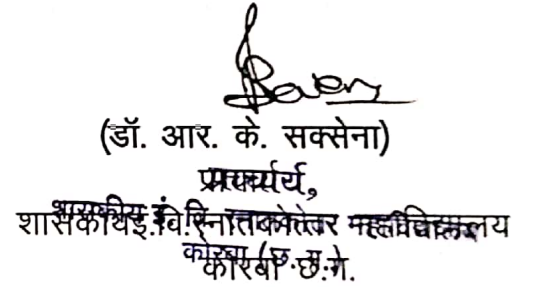 (डॉ. आर. के. सक्सेना)
प्राचार्य,
शासकीय इं.वि.स्नातकोत्तर महाविद्यालय
कोरबा छ.ग.